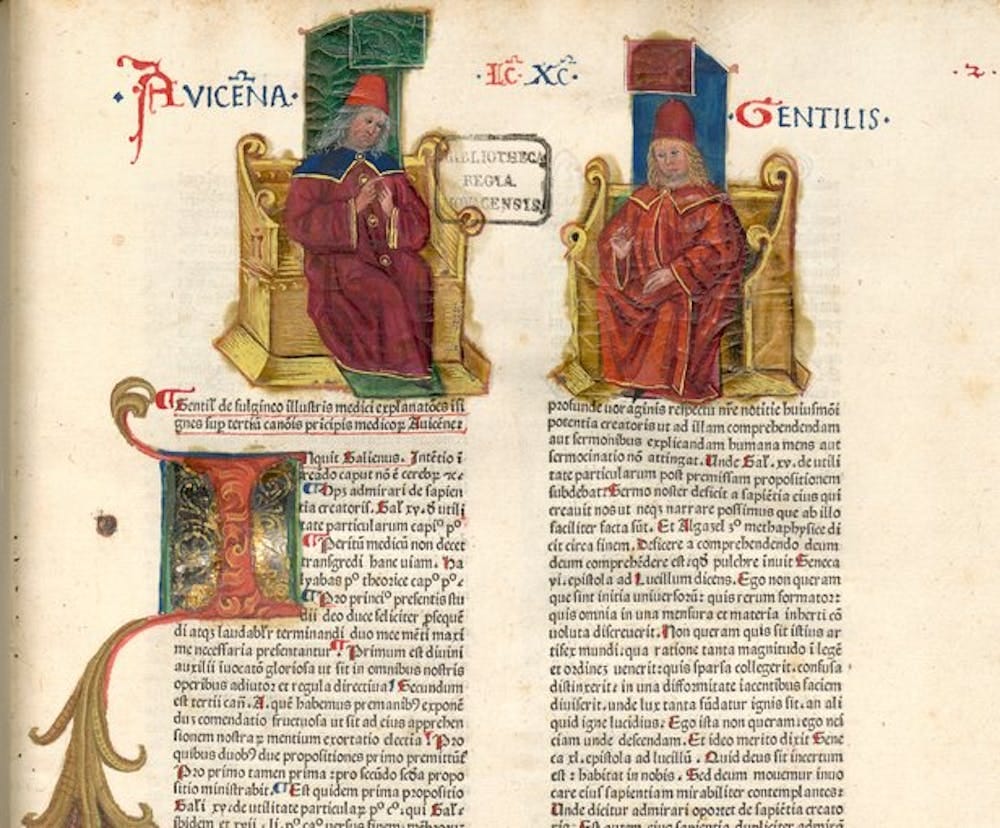 AVICENA.
.Lc. Xc.
.2.
.GENTILIS.
BIBLIOTHECA
REGIA
MONACENSIS
Gentil' de fulgineo illustris medici explanatões isi
gnes sup tertiã canõis prĩcipis medicoꝝ Auicẽne.
Inquit Galienus. Intẽtio ĩ
creado caput nõ ẽ cerebꝝ ⁊c̃
Hps admirari de sapien
tia creatoris. Gal' xv. ð utili
tate particularum capl'o pº
Peritũ medicũ non decet
transgredi hanc uiam. Ha
lyabas pº theorice capº pº
Pro princiº presentis stu
dii deo duce feliciter psequẽ
di atqꝫ laudabl'r terminandi duo mee mẽti maxi
me necessaria presentantur. Primum est diuini
auxilii ĩuocatõ gloriosa ut sit in omnibus nostris
operibus adiutor et regula directiua. Secundum
est tertii cañ. A. quẽ habemus premanibꝰ exponẽ
dus comendatio fructuosa ut sit ad eius apprehen
sionem nostraꝝ mentium exortatio electia. Pro
quibus duobꝰ due propositiones primo premittũt̃
Pro primo tamen prima: pro secũdo scða propo
sitio ministrabit. Est quidem prima propositio
Gal'i xv. de utilitate particulaꝝ pº cº. qui Gal'
profunde uoraginis respectu nr̃e notitie huiusmõi
potentia creatoris ut ad illam comprehendendam
aut sermonibus explicandam humana mens aut
sermocinatio nõ attingat. Unde Gal'. xv. de utili
tate particularum post premissam propositionem
subdebat: Sermo noster deficit a sapiẽtia eius qui
creauit nos ut neqꝫ narrare possimus que ab illo
faciliter facta sũt. Et Algazel 3º methaphysice di
cit circa finem. Deficere a comprehendendo deum
deum comprehẽdere est: qð pulchre inuit Seneca
vi. epistola ad Lucillum dicens. Ego non queram
que sint initia uniuersoꝝ: quis rerum formator:
quis omnia in una mensura et materia inherti cõ
uoluta discreuerit. Non queram quis sit istius ar
tifex mundi: qua ratione tanta magnitudo ĩ legẽ
et ordinẽ venerit: quis sparsa collegerit. confusa
distinxerit: in una difformitate iacentibus faciem
diuiserit. unde lux tanta fũdatur ignis sit. an ali
quid igne lucidius. Ego ista non queram: ego nes
ciam unde descendam. Et ideo merito dixit Sene
ca xl. epistola ad lucillũ. Quid deus sit incertum
est: habitat in nobis. Sed deum mouemur inuo
care eius sapientiam mirabiliter contemplantes.
Unde dicitur admirari oportet de sapiẽtia creato